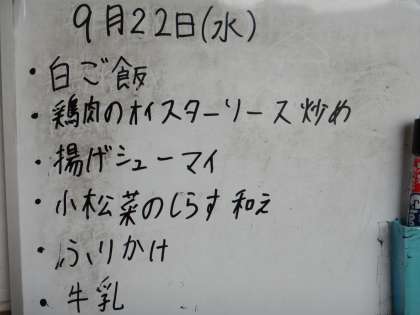 9月22日(水)
・白ご飯
・鶏肉のオイスターソース炒め
・揚げシューマイ
・小松菜のしらす和え
・ふりかけ
・牛乳